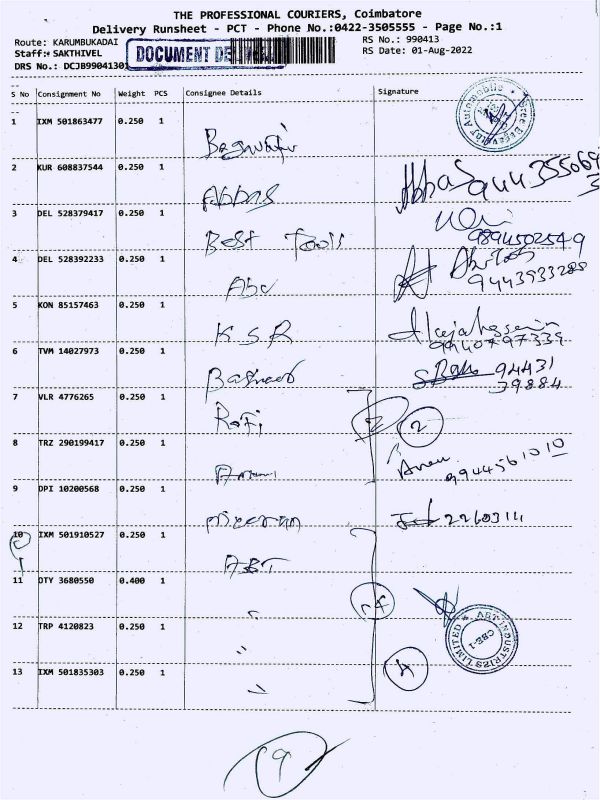 THE PROFESSIONAL COURIERS, Coimbatore
Delivery Runsheet - PCT - Phone No.:0422-3505555 - Page No.:1
Route: KARUMBUKADAI RS No.: 990413
Staff:* SAKTHIVEL DOCUMENT RS Date: 01-Aug-2022
DRS No.: DCJB99041301
S No Consignment No Weight PCS Consignee Details Signature
1 IXM 501863477 0.250 1
2 KUR 608837544 0.250 1
Abbas Abbas
3 DEL 528379417 0.250 1
Best Tools 9894502549
4 DEL 528392233 0.250 1
Abu 9443933288
5 KON 85157463 0.250 1
K.S.R 9940797339
6 TVM 14027973 0.250 1
94431
39884
7 VLR 4776265 0.250 1
Rafi 2 2
8 TRZ 290199417 0.250 1
9944561010
9 DPI 10200568 0.250 1
2260314
10 IXM 501910527 0.250 1
ABT
11 DTY 3680550 0.400 1
12 TRP 4120823 0.250 1
ABT INDUSTRIES LIMITED
CBE-1
13 IXM 501835303 0.250 1
4
9